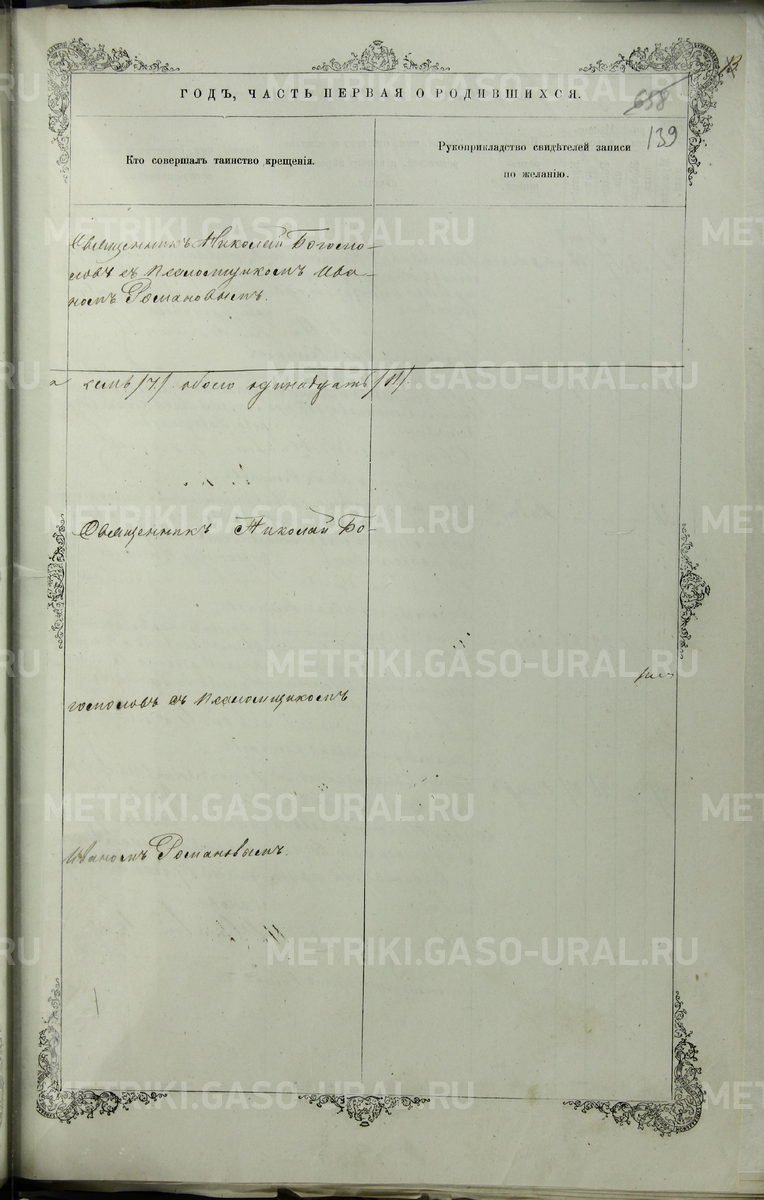 ГОДЪ, ЧАСТЬ ПЕРВАЯ О РОДИВШИХСЯ.
658
139
Кто совершалъ таинство крещенія.
Рукоприкладство свидѣтелей записи
по желанію.
Священникъ Николай Богосло-
ловъ съ Псаломщикомъ Ива-
номъ Романовымъ.
семь /7/ обоего одинадцать /11/.
Священникъ Николай Бо-
гословъ съ Псаломщикомъ
Иваномъ Романовымъ.
METRIKI.GASO-URAL.RU